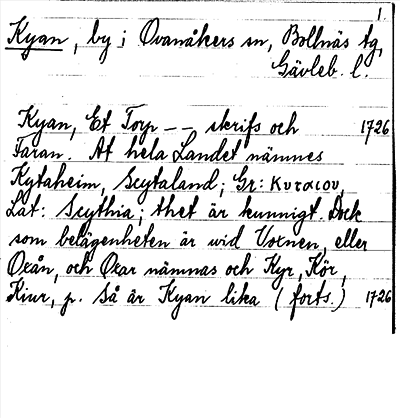 1.
Kyan, by i Ovanåkers sn, Bollnäs tg,
Gävleb. l.
Kyan, Et Torp -- skrifs och 1726
Faran. At hela Landet nämnes
Kytaheim, Scytaland; Gr: Κυταιου,
Lat: Scythia; thet är kunnigt. Dock
som belägenheten är wid Voxnen, eller
Oxån, och Oxar nämnas och Kyr, Kör,
Kiur, p. Så är Kyan lika (forts.) 1726